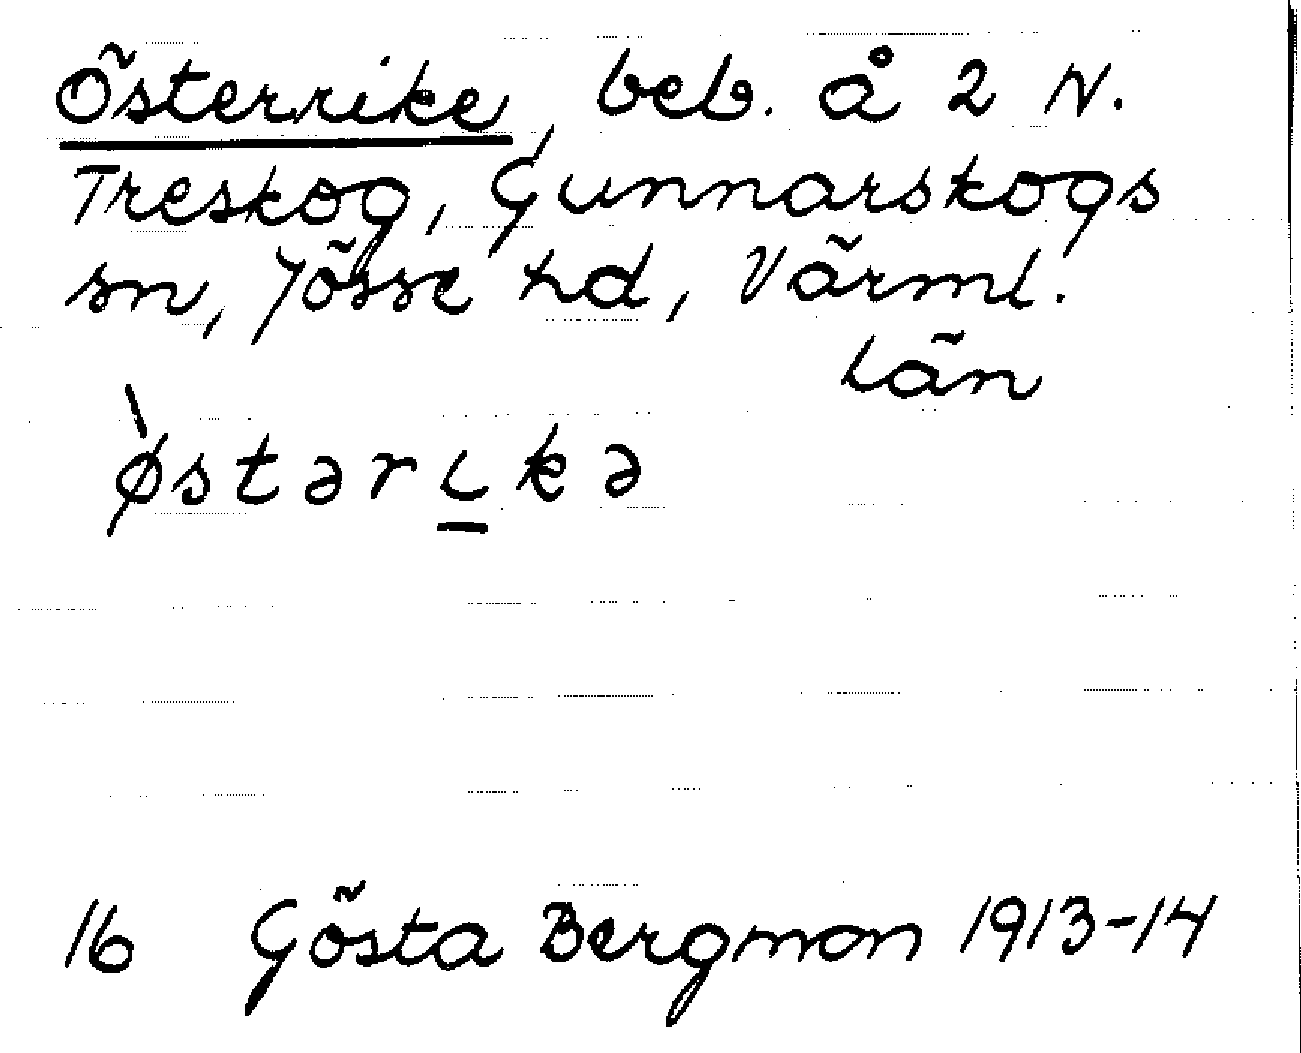 Österrike, beb. å 2 N.
Treskog, Gunnarskogs
sn, Jösse hd, Värml.
län
̀østərɩ̠kə
16 Gösta Bergman 1913-14